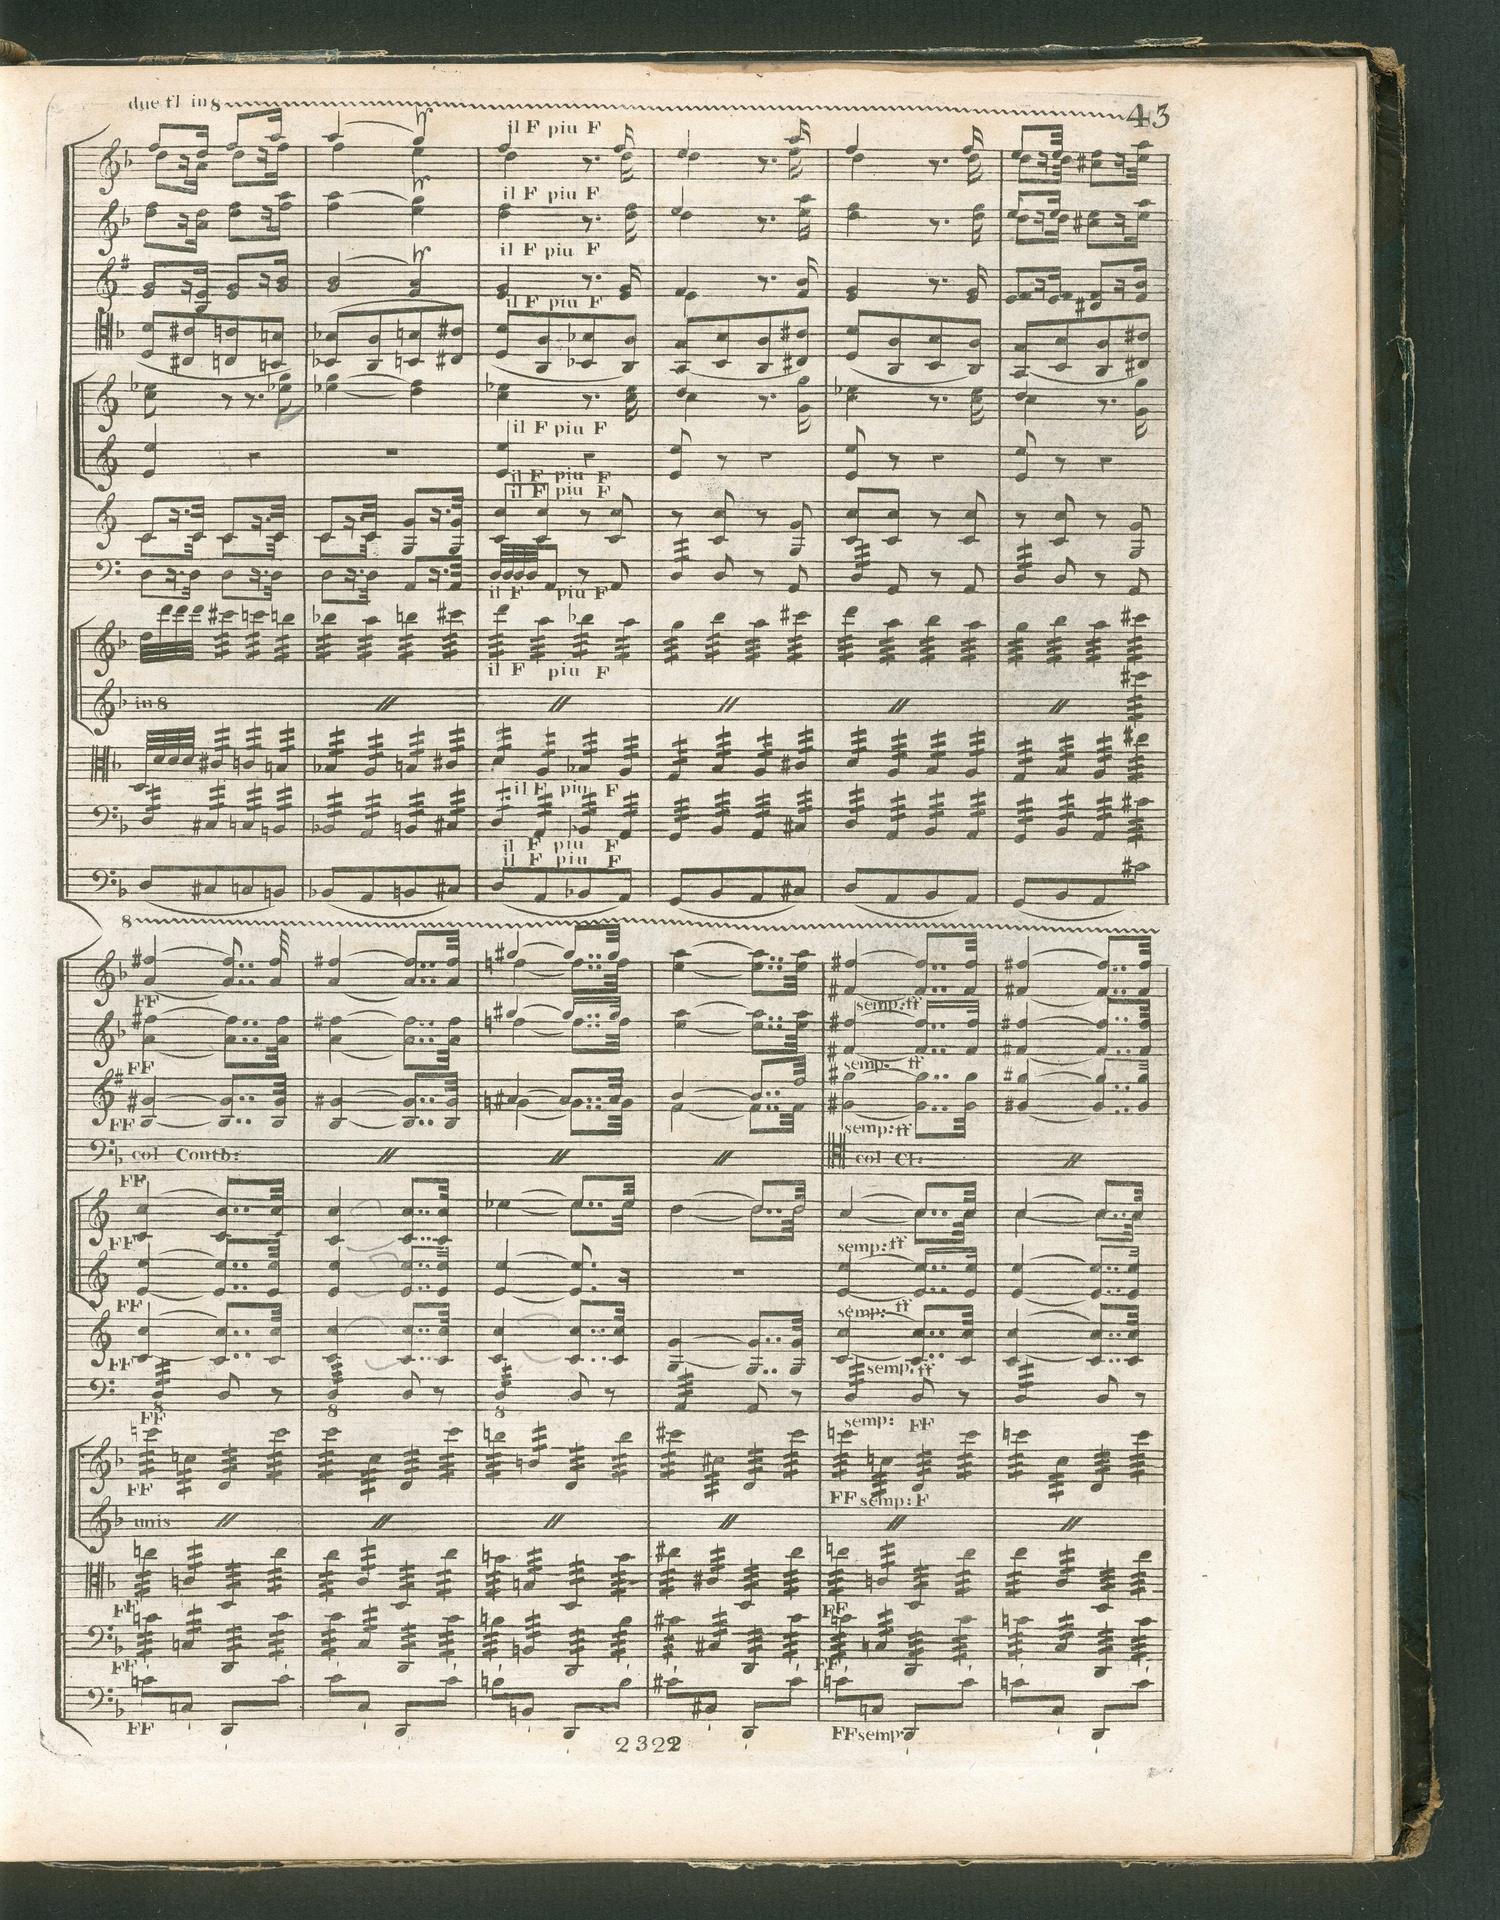 due fl in 8
43
il F piu F
il F piu F
il F piu F
il F piu F
il F piu F
il F piu F
il F piu F
il F piu F
il F piu F
in 8
il F piu F
il F piu F
il F piu F
8
FF
semp: ff
FF
semp: ff
FF
semp: ff
col Contb:
col Cl:
FF
FF
semp: ff
FF
semp: ff
FF
semp: ff
8
8
8
FF
semp: FF
FF
FF semp: F
unis
FF
FF
FF
FF
FF
FF semp:
2322